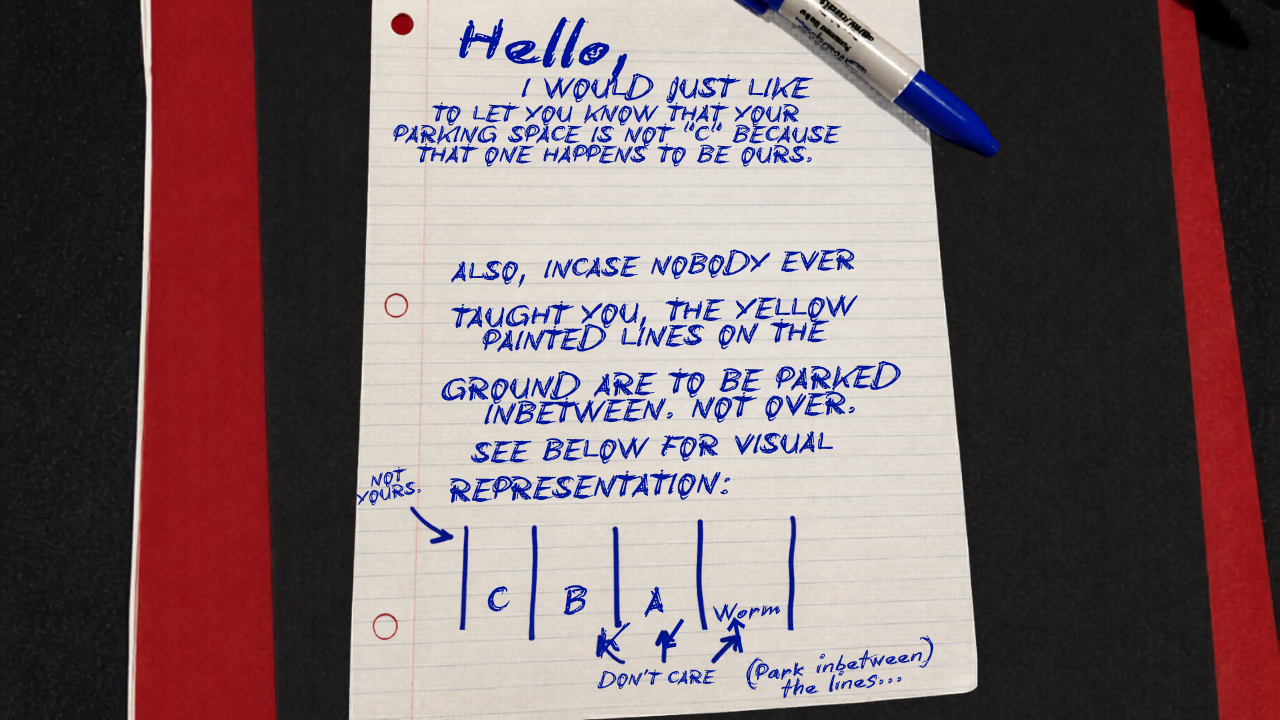 Hello,
I WOULD JUST LIKE
TO LET YOU KNOW THAT YOUR
PARKING SPACE IS NOT "C" BECAUSE
THAT ONE HAPPENS TO BE OURS.
ALSO, INCASE NOBODY EVER
TAUGHT YOU, THE YELLOW
PAINTED LINES ON THE
GROUND ARE TO BE PARKED
INBETWEEN. NOT OVER.
SEE BELOW FOR VISUAL
REPRESENTATION:
NOT
YOURS.
C B A Worm
DON'T CARE
(Park inbetween)
the lines...